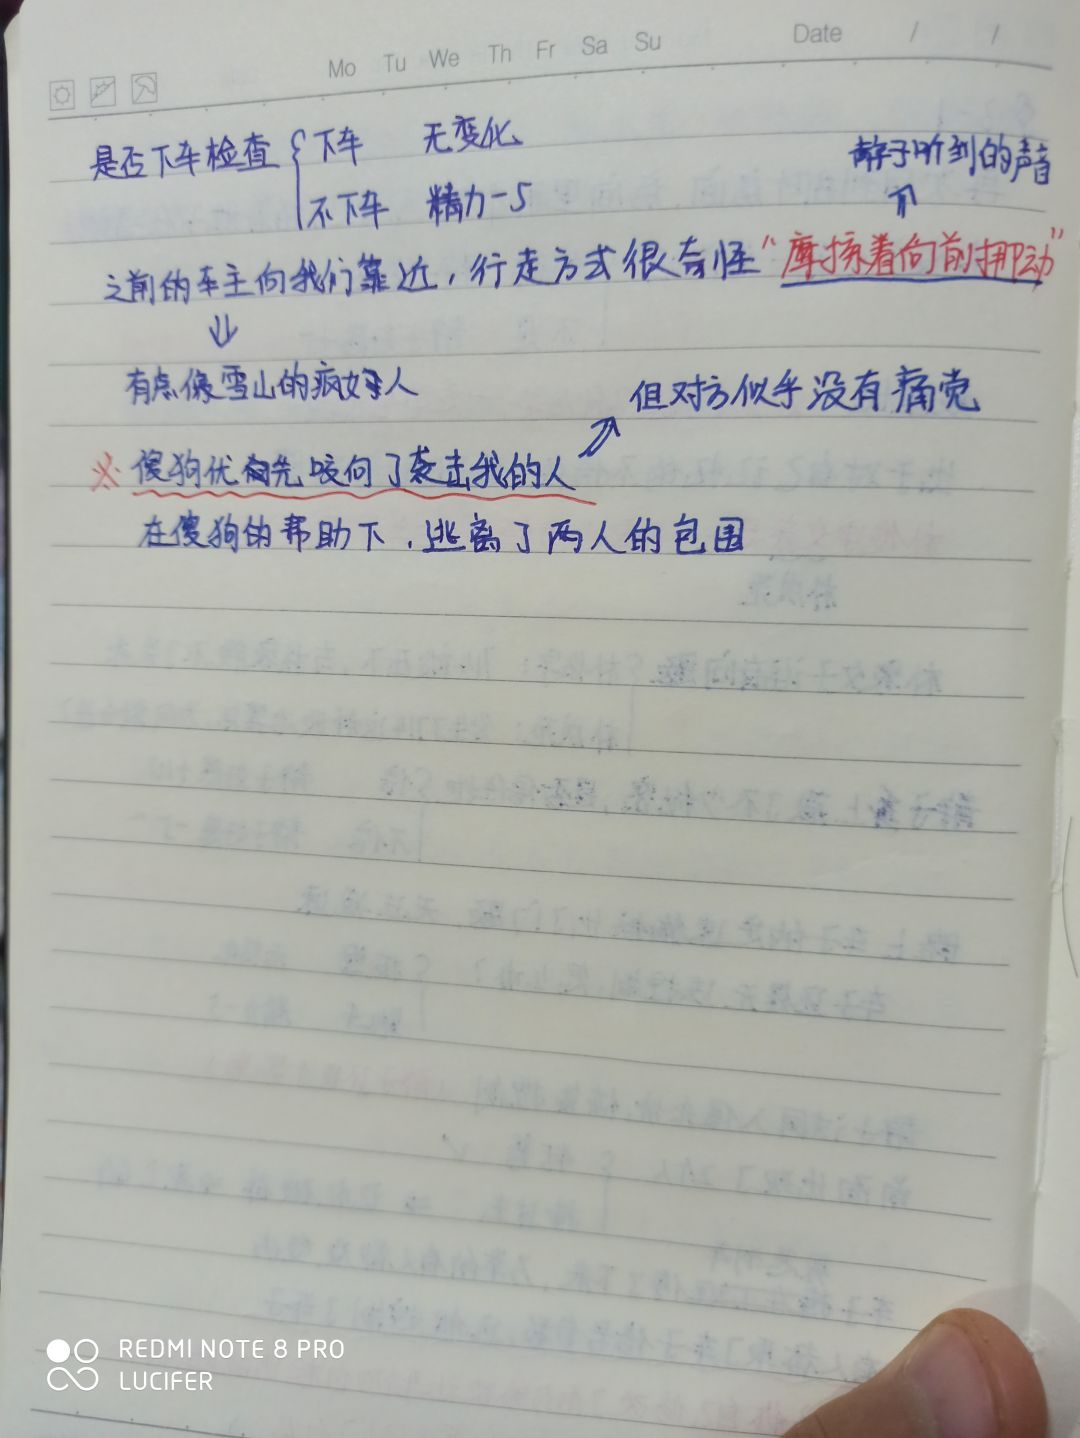 Mo Tu We Th Fr Sa Su Date / /
是否下车检查 { 下车 无变化
不下车 精力-5
静子听到的声音
⇑
之前的车主向我们靠近，行走方式很奇怪“摩擦着向前挪动”
⇓
有点像雪山的疯女人
但对方似乎没有痛觉
※ 傻狗优先咬向了袭击我的人
在傻狗的帮助下，逃离了两人的包围
REDMI NOTE 8 PRO
LUCIFER